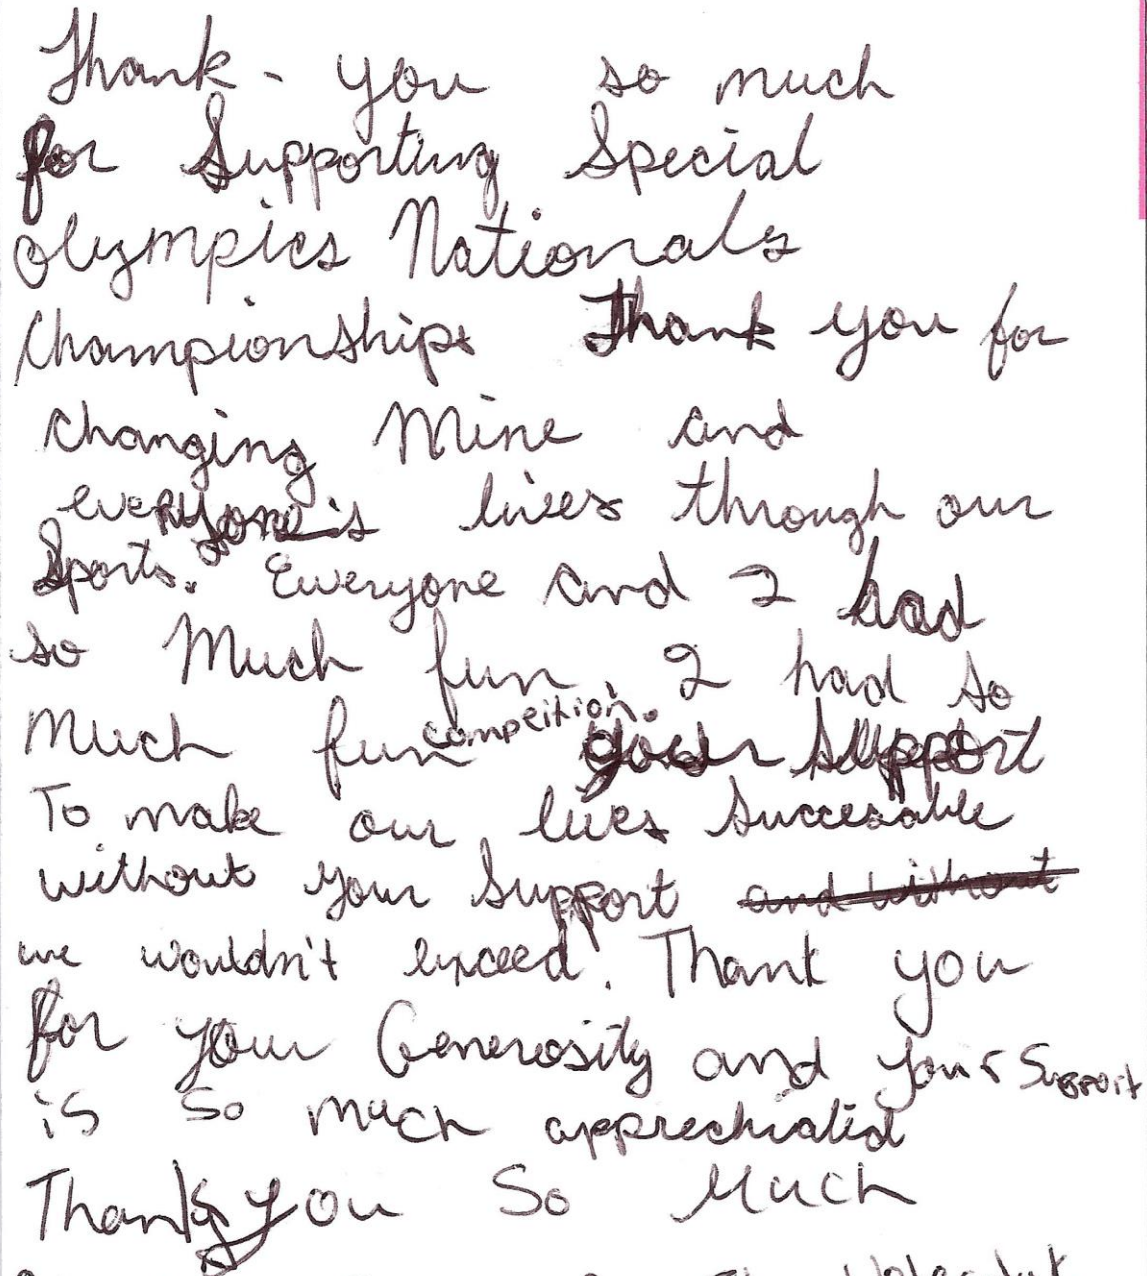 Thank-you so much
for Supporting Special
Olympics Nationals
Championships Thank you for
changing Mine and
everyone's lives through our
Sports. Everyone and I had
so Much fun. I had so
Much fun competition. your support
To make our lives Succesable
without your Support and without
we wouldn't exceed. Thank you
for your Generosity and your Support
is so much apprechiated
Thank you So Much